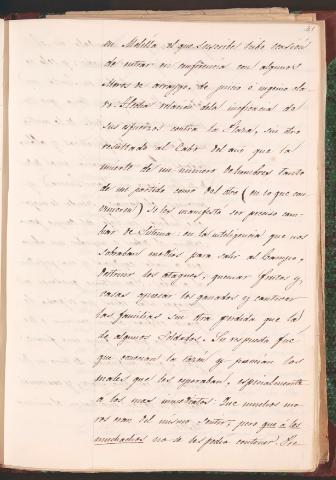 41
en Melilla el que suscribe tubo ocasion
de entrar en conferencia con algunos
Moros de arraygo, de juicio e ingenio
relacion de la ineficacia de
sus esfuerzos contra la Plaza, sin otro
resultado al Cabo del año que la
muerte de un numero de hombres tanto
de un partido como del otro (en lo que con
vinieron) se les manifesto ser preciso cam
biar de Sistema: en la inteligencia que nos
sobraban medios para salir al Campo,
destruir los ataques, quemar frutos y
casas apresar los ganados y cautivar
las familias sin otra perdida que la
de algunos Soldados. Su respuesta fue
que conocian la razon y preveian los
males que les esperaban, especialmente
a los mas inmediatos: Que muchos mo
ros eran del mismo sentir, pero que a los
muchachos no se les podia contener. Pre